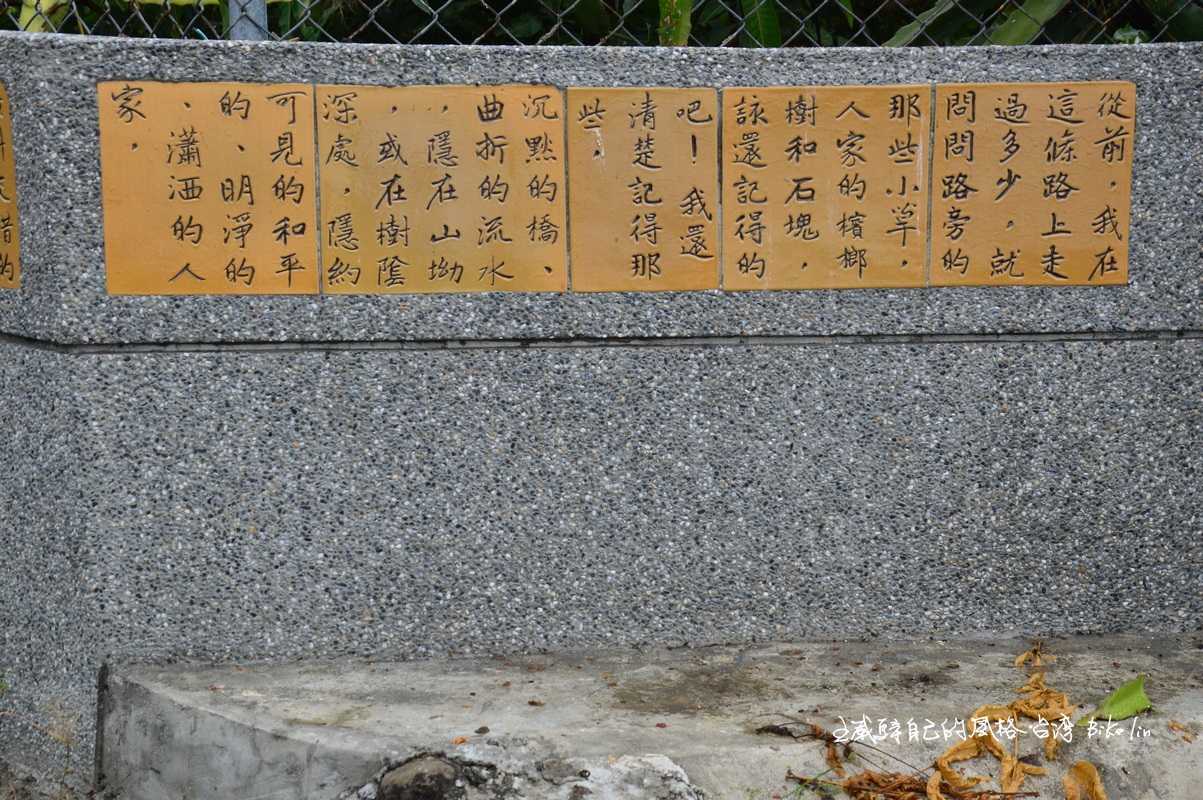 從前，我在
這條路上走
過多少，就
問問路旁的
那些小草，
人家的檳榔
樹和石塊，
該還記得的
吧！我還
清楚記得那
些，
沉默的橋、
曲折的流水
，隱在山坳
，或在樹蔭
深處，隱約
可見的和平
的、明淨的
、瀟洒的人
家，
惜的
自己的風格 台灣 Biko lin